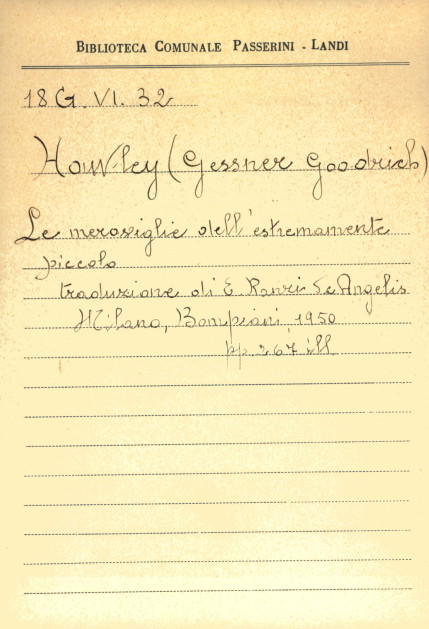 BIBLIOTECA COMUNALE PASSERINI - LANDI
18 G. VI. 32
Hawley (Gessner Goodrich)
Le meraviglie dell'estremamente
piccolo
traduzione di E. Ranzi De Angelis
Milano, Bompiani, 1950
pp. 267 ill